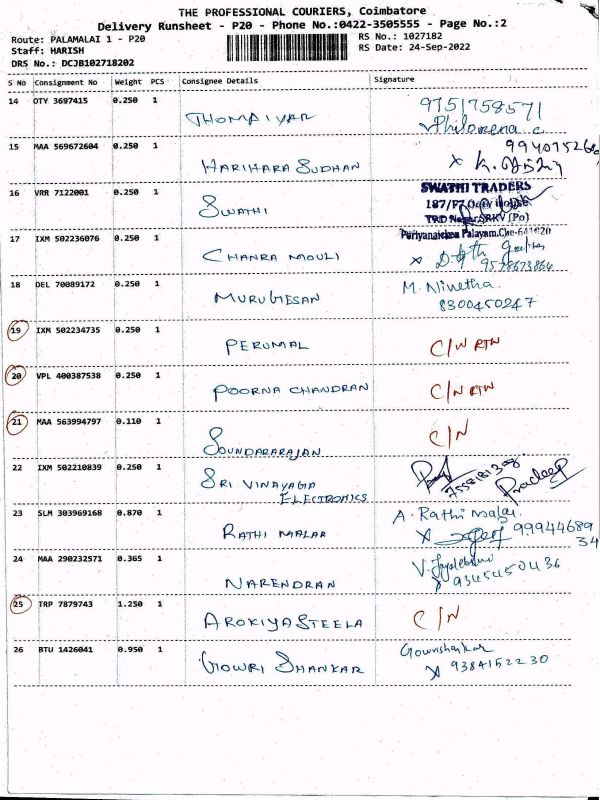 THE PROFESSIONAL COURIERS, Coimbatore
Delivery Runsheet - P20 - Phone No.:0422-3505555 - Page No.:2
Route: PALAMALAI 1 - P20 RS No.: 1027182
Staff: HARISH RS Date: 24-Sep-2022
DRS No.: DCJB102718202
S No Consignment No Weight PCS Consignee Details Signature
14 OTY 3697415 0.250 1 THOMAIYAR 9751758571
Philomena c
15 MAA 569672604 0.250 1 HARIHARA SUDHAN
16 VRR 7122001 0.250 1 SWATHI SWATHI TRADERS
187/F7
TRD Nagar,SRKV (Po)
17 IXM 502236076 0.250 1 CHANRA MOULI
18 DEL 70089172 0.250 1 MURUGESAN M. Nivetha.
8300450247
19 IXM 502234735 0.250 1 PERUMAL C/N RTN
20 VPL 400387538 0.250 1 POORNA CHANDRAN C/N RTN
21 MAA 563994797 0.110 1 SOUNDARARAJAN C/N
22 IXM 502210839 0.250 1 SRI VINAYAGA
ELECTRONICS Pradeep
23 SLM 303969168 0.870 1 RATHI MALAR A. Rathi malar.
x 99944689
34
24 MAA 290232571 0.365 1 NARENDRAN
x 9345450436
25 TRP 7879743 1.250 1 AROKIYASTEELA C/N
26 BTU 1426041 0.950 1 GOWRI SHANKAR Gowrishankar
x 9384152230